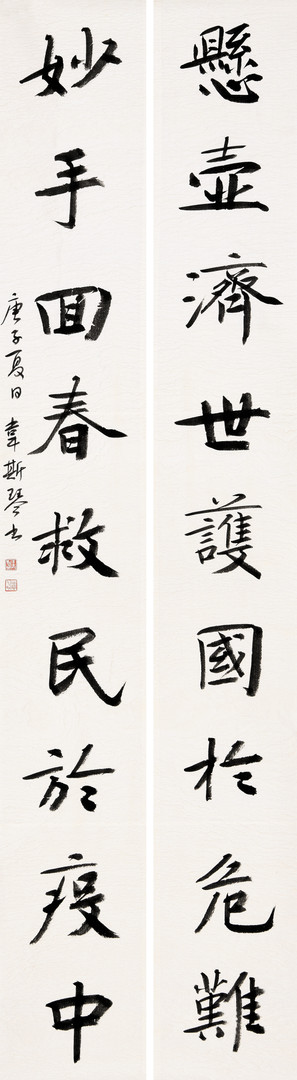 懸壺濟世護國於危難
妙手回春救民於疫中
庚子夏日韋斯琴書